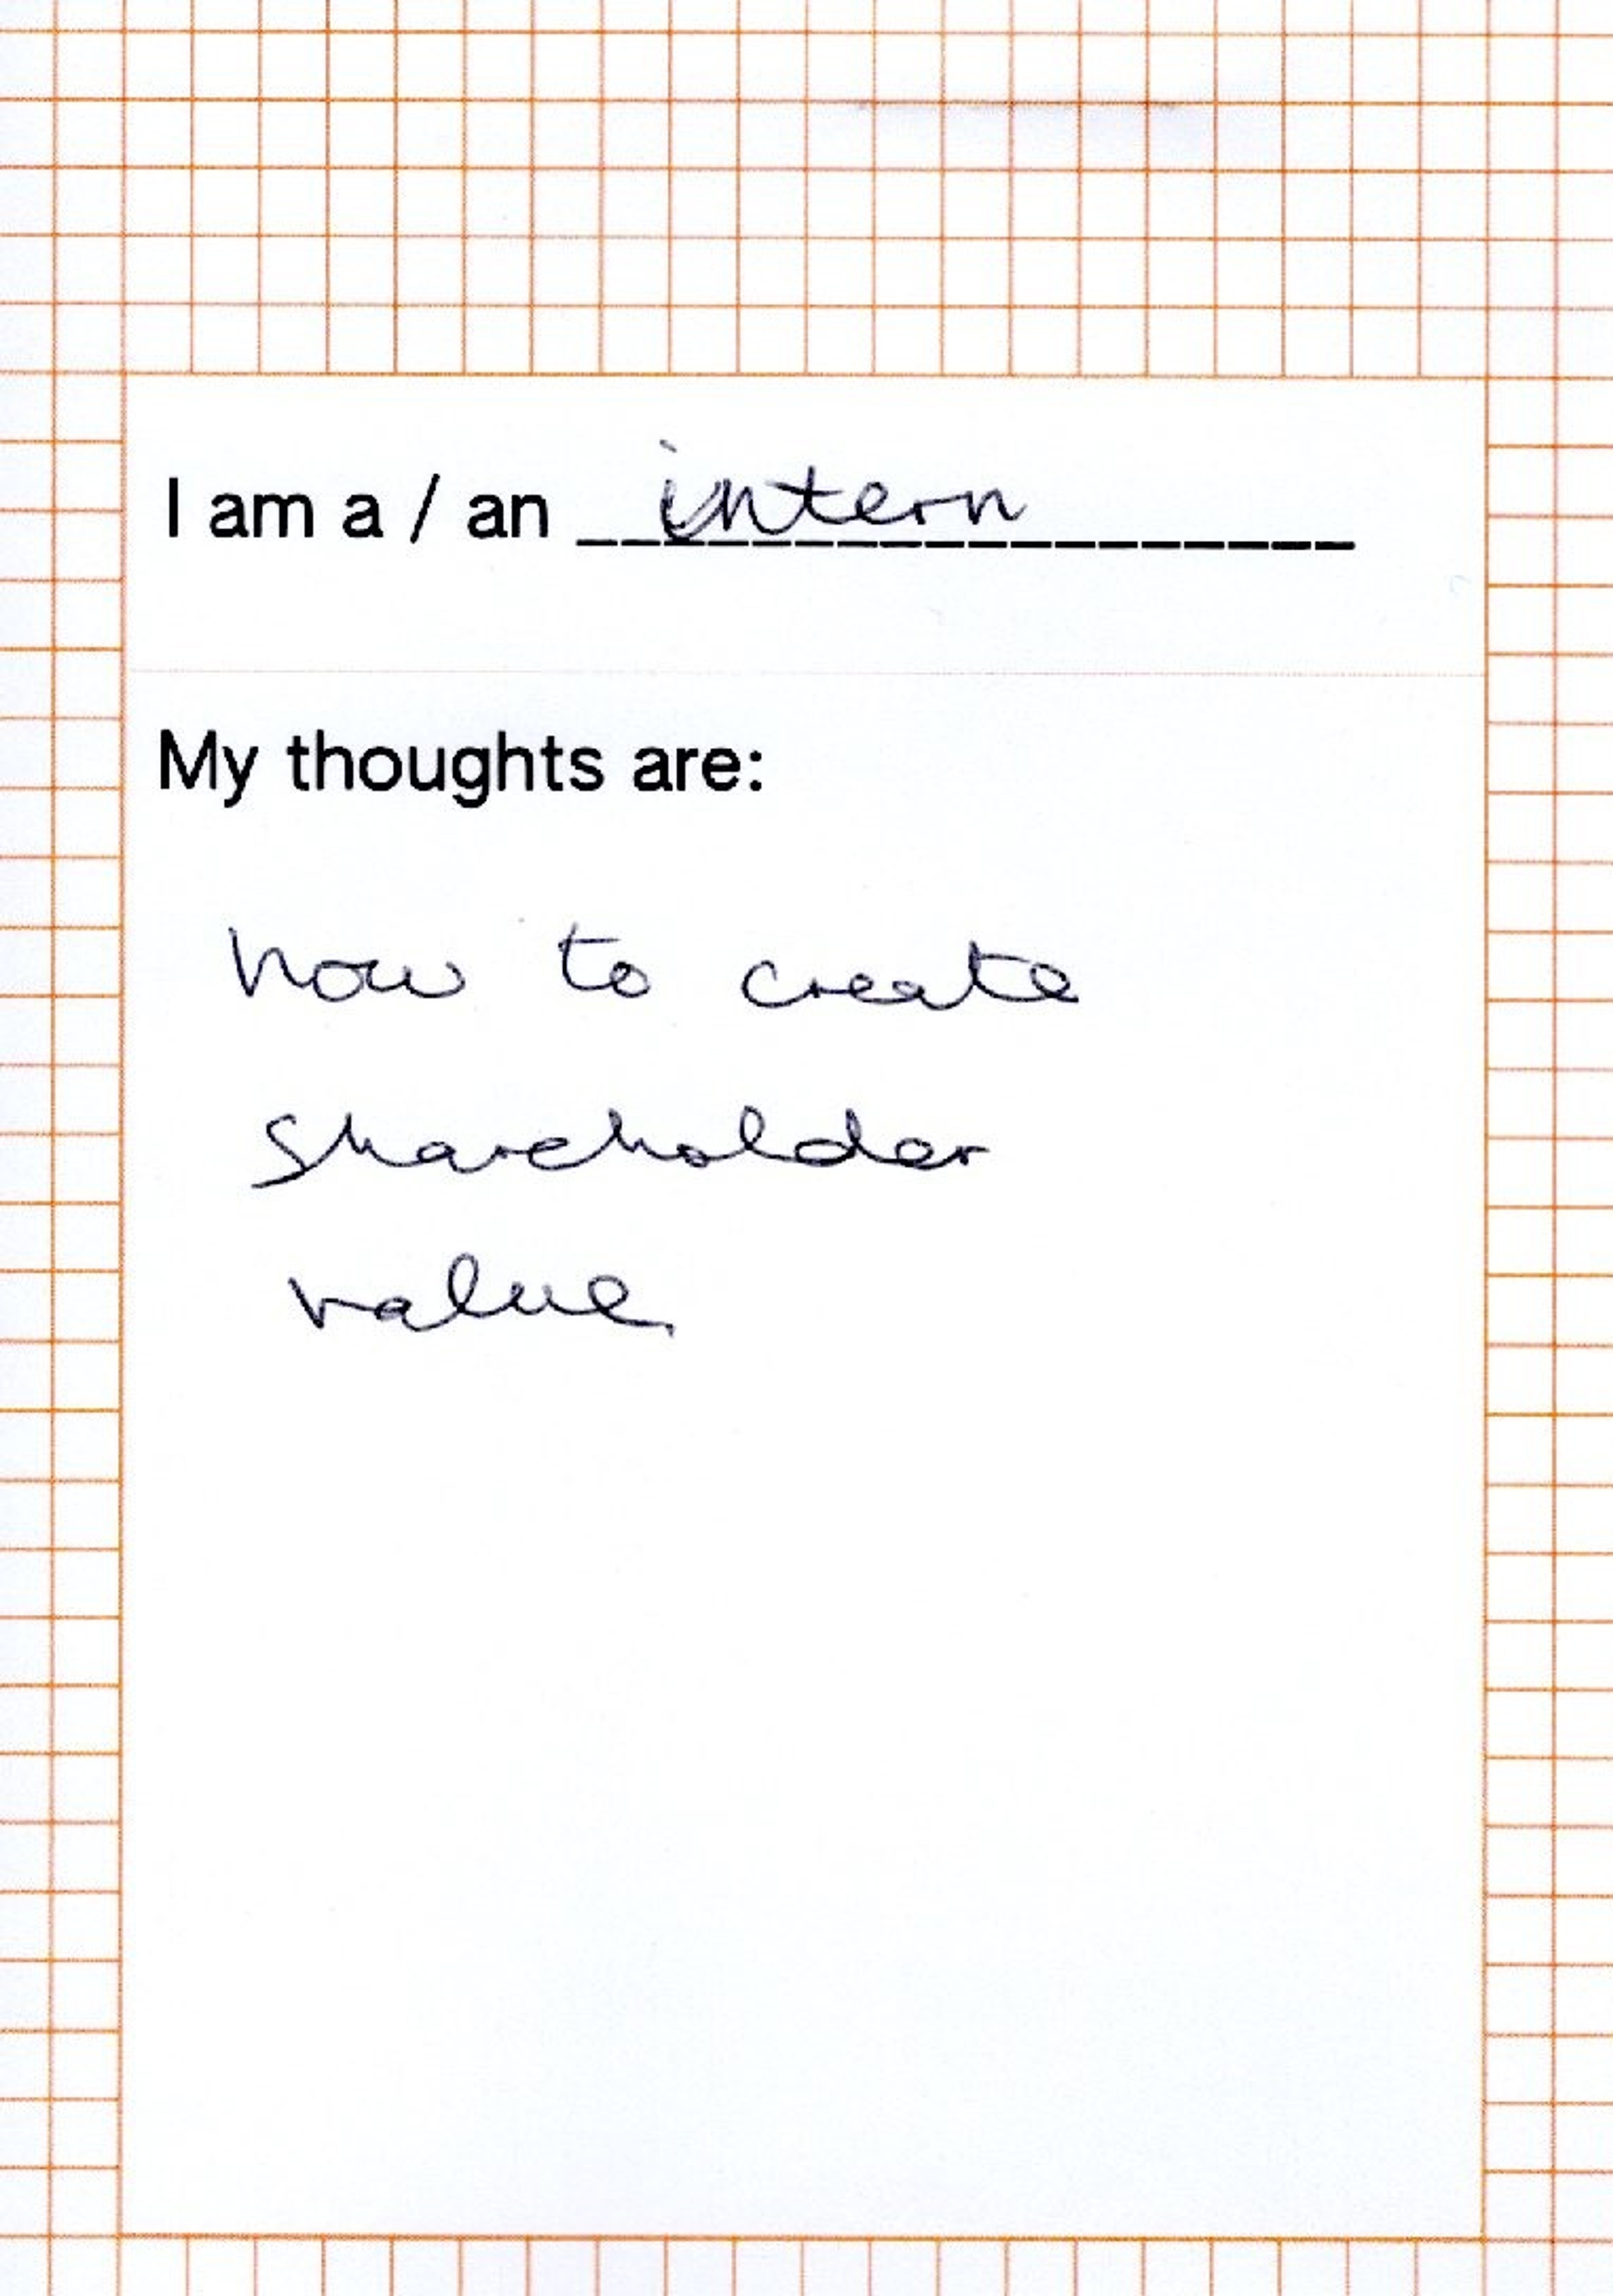 I am a / an intern
My thoughts are:
how to create
shareholder
value